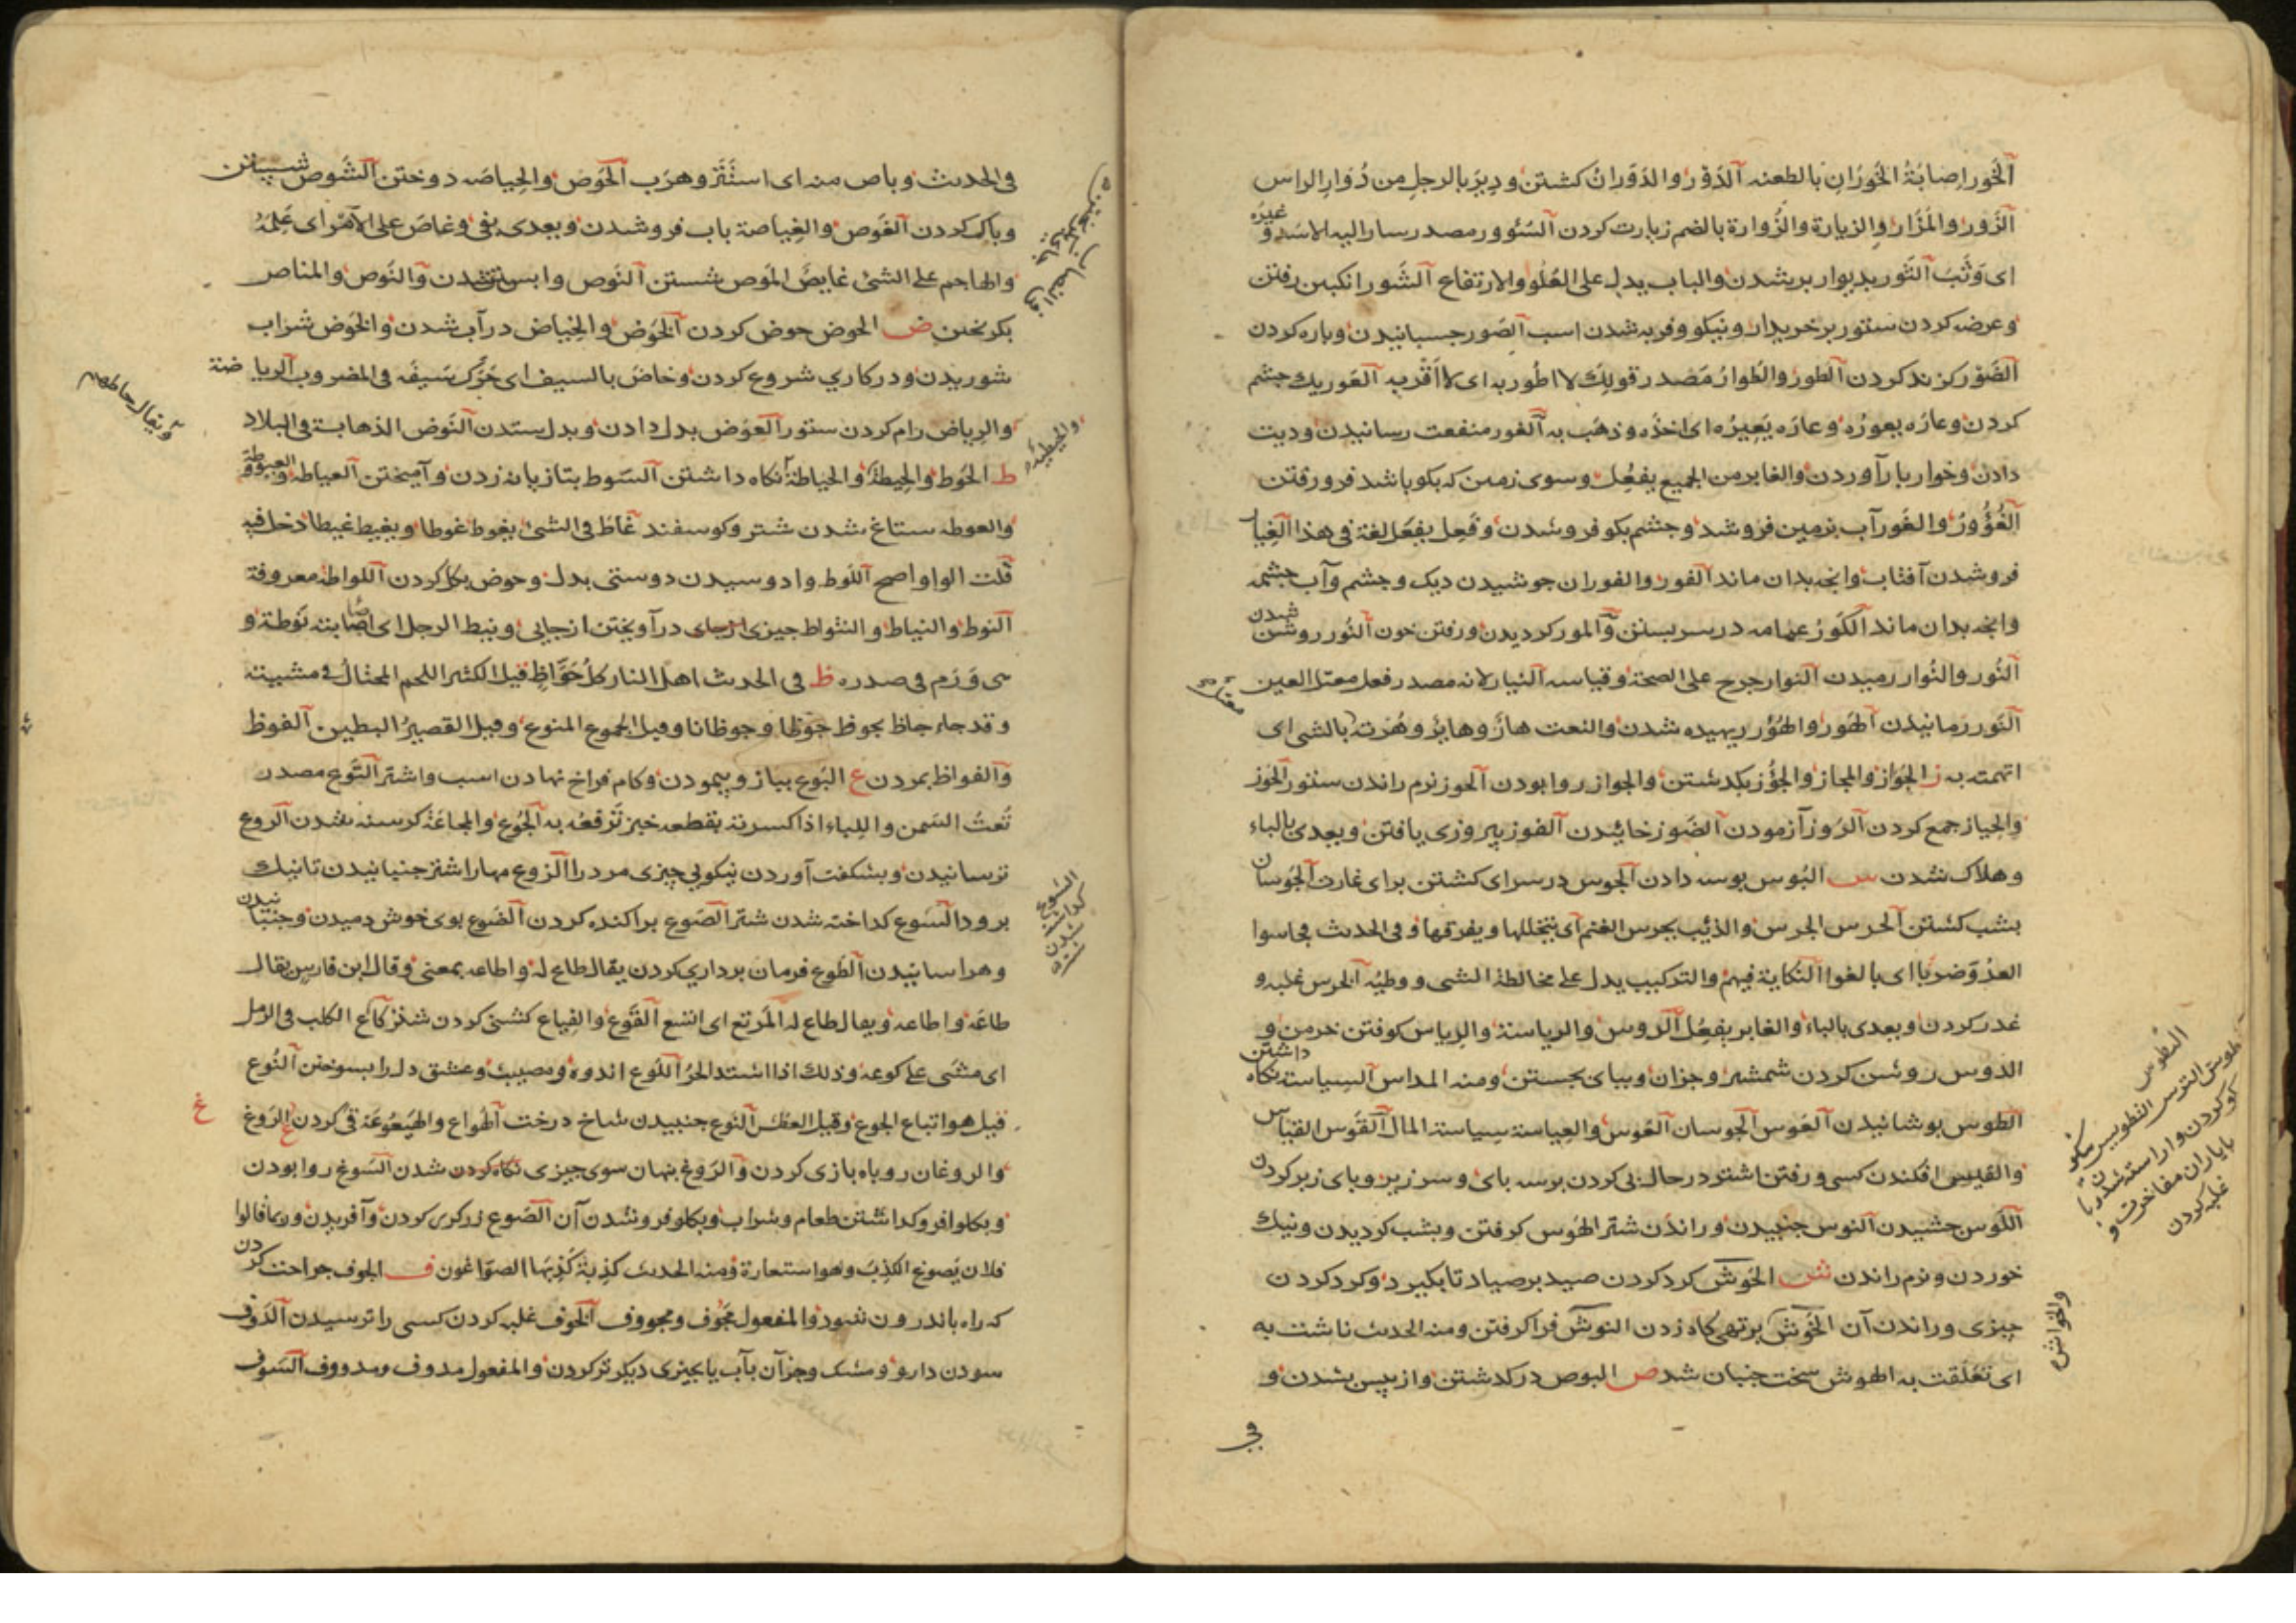 الخَور اِصابَةُ الخَورَانِ بالطعنه الدَوْر والدَوَرانُ کشتن و دِیرَ بالرجلِ من دُوَارِ الراس
الزَور والمَزَار والزیارة والزُوارة بالضم زیارت کردن السُئوور مصدر سار الیه الاسَد و غیرُه
ای وَثَبَ التَور بدیوار برشدن والباب یدل علی العُلُو والارتفاع الشَور انکبین رفتن
وعرضه کردن ستور بر خریدار و نیکو و فربه شدن اسب الصَور جسبانیدن و باره کردن
الضَوْر کزند کردن الطور والطَوارُ مَصْدر قولِکَ لا اطُور به ای لا اَقْرَبه العَور یك جشم
کردن وعارَه یعورُه وعارَه یَعِیرُه ای اخذَه و ذهَب به الغور منفعت رسانیدن و دیت
دادن وخواربار آوردن والغابر من الجمیع یفعُل وسوی زمین که بکو باشد فرو رفتن
الغُؤُورُ والغَور آب بزمین فروشد و جشم بکو فروشدن وفَعِل یفعَل لغة فی هذا الغِیار
فروشدن آفتاب وانجه بدان ماند الفور والفوران جوشیدن دیک و جشم و آب جشمه
وانجه بدان ماند الکَورُ عمامه در سر بستن والمور کردیدن و رفتن خون النُور روشن شدن
النُور والنُوار رمیدن النوار جرج علی الصحة وقیاسه النیار لانه مصدر فعل معتل العین
النَور رمانیدن الهَور والهُؤُر ریهیده شدن والنعت هارٌ وهایرٌ وهُرْته بالشی ای
اتهمته به ز الجَواز والمجاز والجُؤُز بکذشتن والجواز روا بودن الحوز نرم راندن ستور الحَوز
والحِیاز جمع کردن الرَوز آزمودن الضَوز خائیدن الفوز پیروزی یافتن و یعدی بالباء
وهلاک شدن س البُوس بوسه دادن الجوس در سرای کشتن برای غارت الجُوسان
بشب کشتن الحرس الجرس والذئب یحوس الغنم ای یتخللها ویفرقها وفی الحدیث فحاسوا
العدُوَ ضربًا ای بالغوا النکایة فیهم والترکیب یدل علی مخالطة الشی و وطیُه الحوس غلبه و
غدر کردن و یعدی بالباء والغابر یفعُل الدَوس والدیاسة والدیاس کوفتن خرمن و
الدوس روشن کردن شمشیر وجزآن وببای بجستن ومنه المداس السیاسة نکاه داشتن
الطوس پوشانیدن العَوس الجوسان العَوس والعِیاسة سیاسة المال القَوس القیاس
والقیس افکندن کسی و رفتن اشتر در حال پی کردن بر سه بای وسر زیر و بای زبر کردن
اللَوس جشیدن النوس جنبیدن و راندن شتر الهَوس کرفتن و بشب کردیدن و نیك
خوردن و نرم راندن ش الحَوش کرد کردن صید بر صیاد تا بکیرد و کرد کردن
جیزی و راندن آن الخَوش بر تهی کاه زدن النوش فرا کرفتن ومنه الحدیث ناشت به
ای تعلقت به الهوش سخت جنبان شد ص البوص در کذشتن و از پیس بشدن و
فی
والخواش
فی الحدیث وباص منه ای استَتَر وهرَب الحَوص والحِیاصه دوختن الشَوص شستن
وپاک کردن الغَوص والغِیاصة بآب فروشدن ویعدی بفی وغاصَ علی الاَمْر ای عَلِمَهُ
والهاجم علی الشئ غایصٌ المَوص شستن النَوص وابس شدن والنَوص والمناص
بکریختن ض الحوض حوض کردن الخَوض والخِیاض در آب شدن والخَوض شراب
شوریدن و در کاری شروع کردن وخاضَ بالسیف ای حَرَّکَ سَیفَه فی المضروب الریاضة
والرِیاض رام کردن ستور العَوض بدل دادن وبدل ستدن النَوض الذهاب فی البلاد
ط الحَوط والحِیطة والحیاطة نکاه داشتن السَوط بتازیانه زدن و آمیختن العیاطه والعیوطة و
والعوطه ستاغ شدن شتر و کوسفند غَاطَ فی الشئ یغوط غوطا و یغیط غیطا دخل فیه
قُلت الواو اصح اللَوط وادوسیدن دوستی بدل وحوض بکل کردن اللواطة معروفة
النوط والنیاط والتنواط جیزی در آویختن از جایی ونیط الرجل ای اصابته نَوطة و
هی وَرَم فی صدره ظ فی الحدیث اهل النار کلُ جَوَّاظٍ قیل الکثیر اللحم المختال فی مشیته
وقد جاء جاظ یجوظ جَوْظا وجوظانا وقیل الجَموع المنوع وقیل القصیرُ البطین الفوظ
والفواظ بمردن ع البَوع بباز و پیمودن وکام فراخ نهادن اسب و اشتر التَوع مصدر
تُعتُ السَمن واللِباء اذا کسرته بقطعه خبز تَرْفعُه به الجُوع والمجاعَة کرسنه شدن الروع
ترسانیدن و بشکفت آوردن نیکویی چیزی مرد را الزوع مهار اشتر جنبانیدن تا نیك
برود السَوع کداخته شدن شتر الصَوع براکنده کردن الضَوع بوی خوش دمیدن وجنبانیدن
وهراسانیدن الطَوع فرمان برداری کردن یقال طاع له واطاعه بمعنی وقال ابن فارس یقال
طاعَه واطاعه ویقال طاع له المَرتع ای اتسع القَوع والقیاع کشنی کردن شتر کَاعَ الکلب فی الرمل
ای مَشَی علی کوعه وذلك اذا اشتد الحرُ اللَوع اندوه ومصیبت وعشق دل را بسوختن النُوع
قیل هو اتباع الجوع وقیل العطش النَوع جنبیدن شاخ درخت الهُواع والهَیعُوعَة قی کردن غ الرَوغ
والروغان روباه بازی کردن والرَوغ پنهان سوی جیزی شدن السَوغ روا بودن
وبکلو افرو کذاشتن طعام و شراب و بکلو فروشدن آن الصَوغ زرکری کردن وآفریدن وربما قالوا
فلان یَصوغ الکذِبَ وهو استعارة ومنه الحدیث کذِبَة کَذَبَهَا الصوّاغون ف الجوف جراحت کردن
که راه باندرون شود والمفعول مَجُوف ومجووف الخَوف غلبه کردن کسی را ترسیدن الدَوف
سودن دارو و مشک وجزآن بآب یا بجیزی دیکر تر کردن والمفعول مدوف ومدووف السَوف
والحیطة
السَوع کداخته شدن شتر
غ